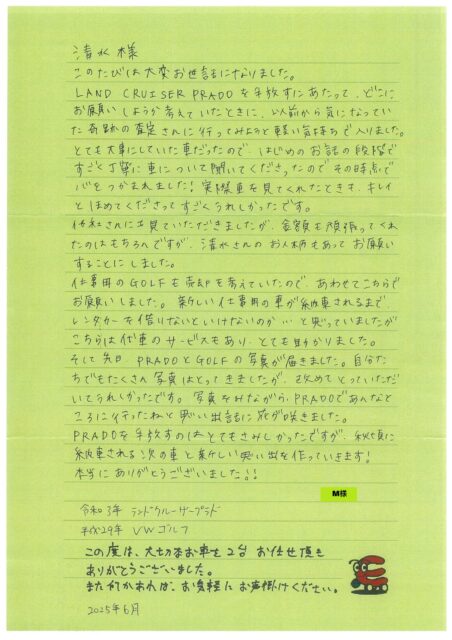 清水様
このたびは大変お世話になりました。
LAND CRUISER PRADOを手放すにあたって、どこに
お願いしようか考えていたときに、以前から気になってい
た奇跡の査定さんに行ってみようと軽い気持ちで入りました。
とても大事にしていた車だったので、はじめのお話の段階で
すごく丁寧に車について聞いてくださったので その時点で
心をつかまれました！実際車を見てくれたときも、キレイ
とほめてくださってすごくうれしかったです。
他社さんにも見ていただきましたが、金額も頑張ってくれ
たのはもちろんですが、清水さんのお人柄もあってお願い
することにしました。
仕事用のGOLFも売却を考えていたので、あわせてこちらで
お願いしました。新しい仕事用の車が納車されるまで
レンタカーを借りないといけないのか…と思っていましたが
こちらは代車のサービスもあり、とても助かりました。
そして先日 PRADOとGOLFの写真が届きました。自分た
ちでもたくさん写真はとってきましたが、改めてとっていただ
いてうれしかったです。写真をみながら、PRADOであんなと
ころに行ったねと思い出話に花が咲きました。
PRADOを手放すのはとてもさみしかったですが、秋頃に
納車される次の車と新しい思い出を作っていきます！
本当にありがとうございました!!
M様
令和3年 ランドクルーザープラド
平成29年 VWゴルフ
この度は、大切なお車を2台 お任せ頂き
ありがとうございました。
また何かあれば、お気軽にお声掛けください。
2025年6月